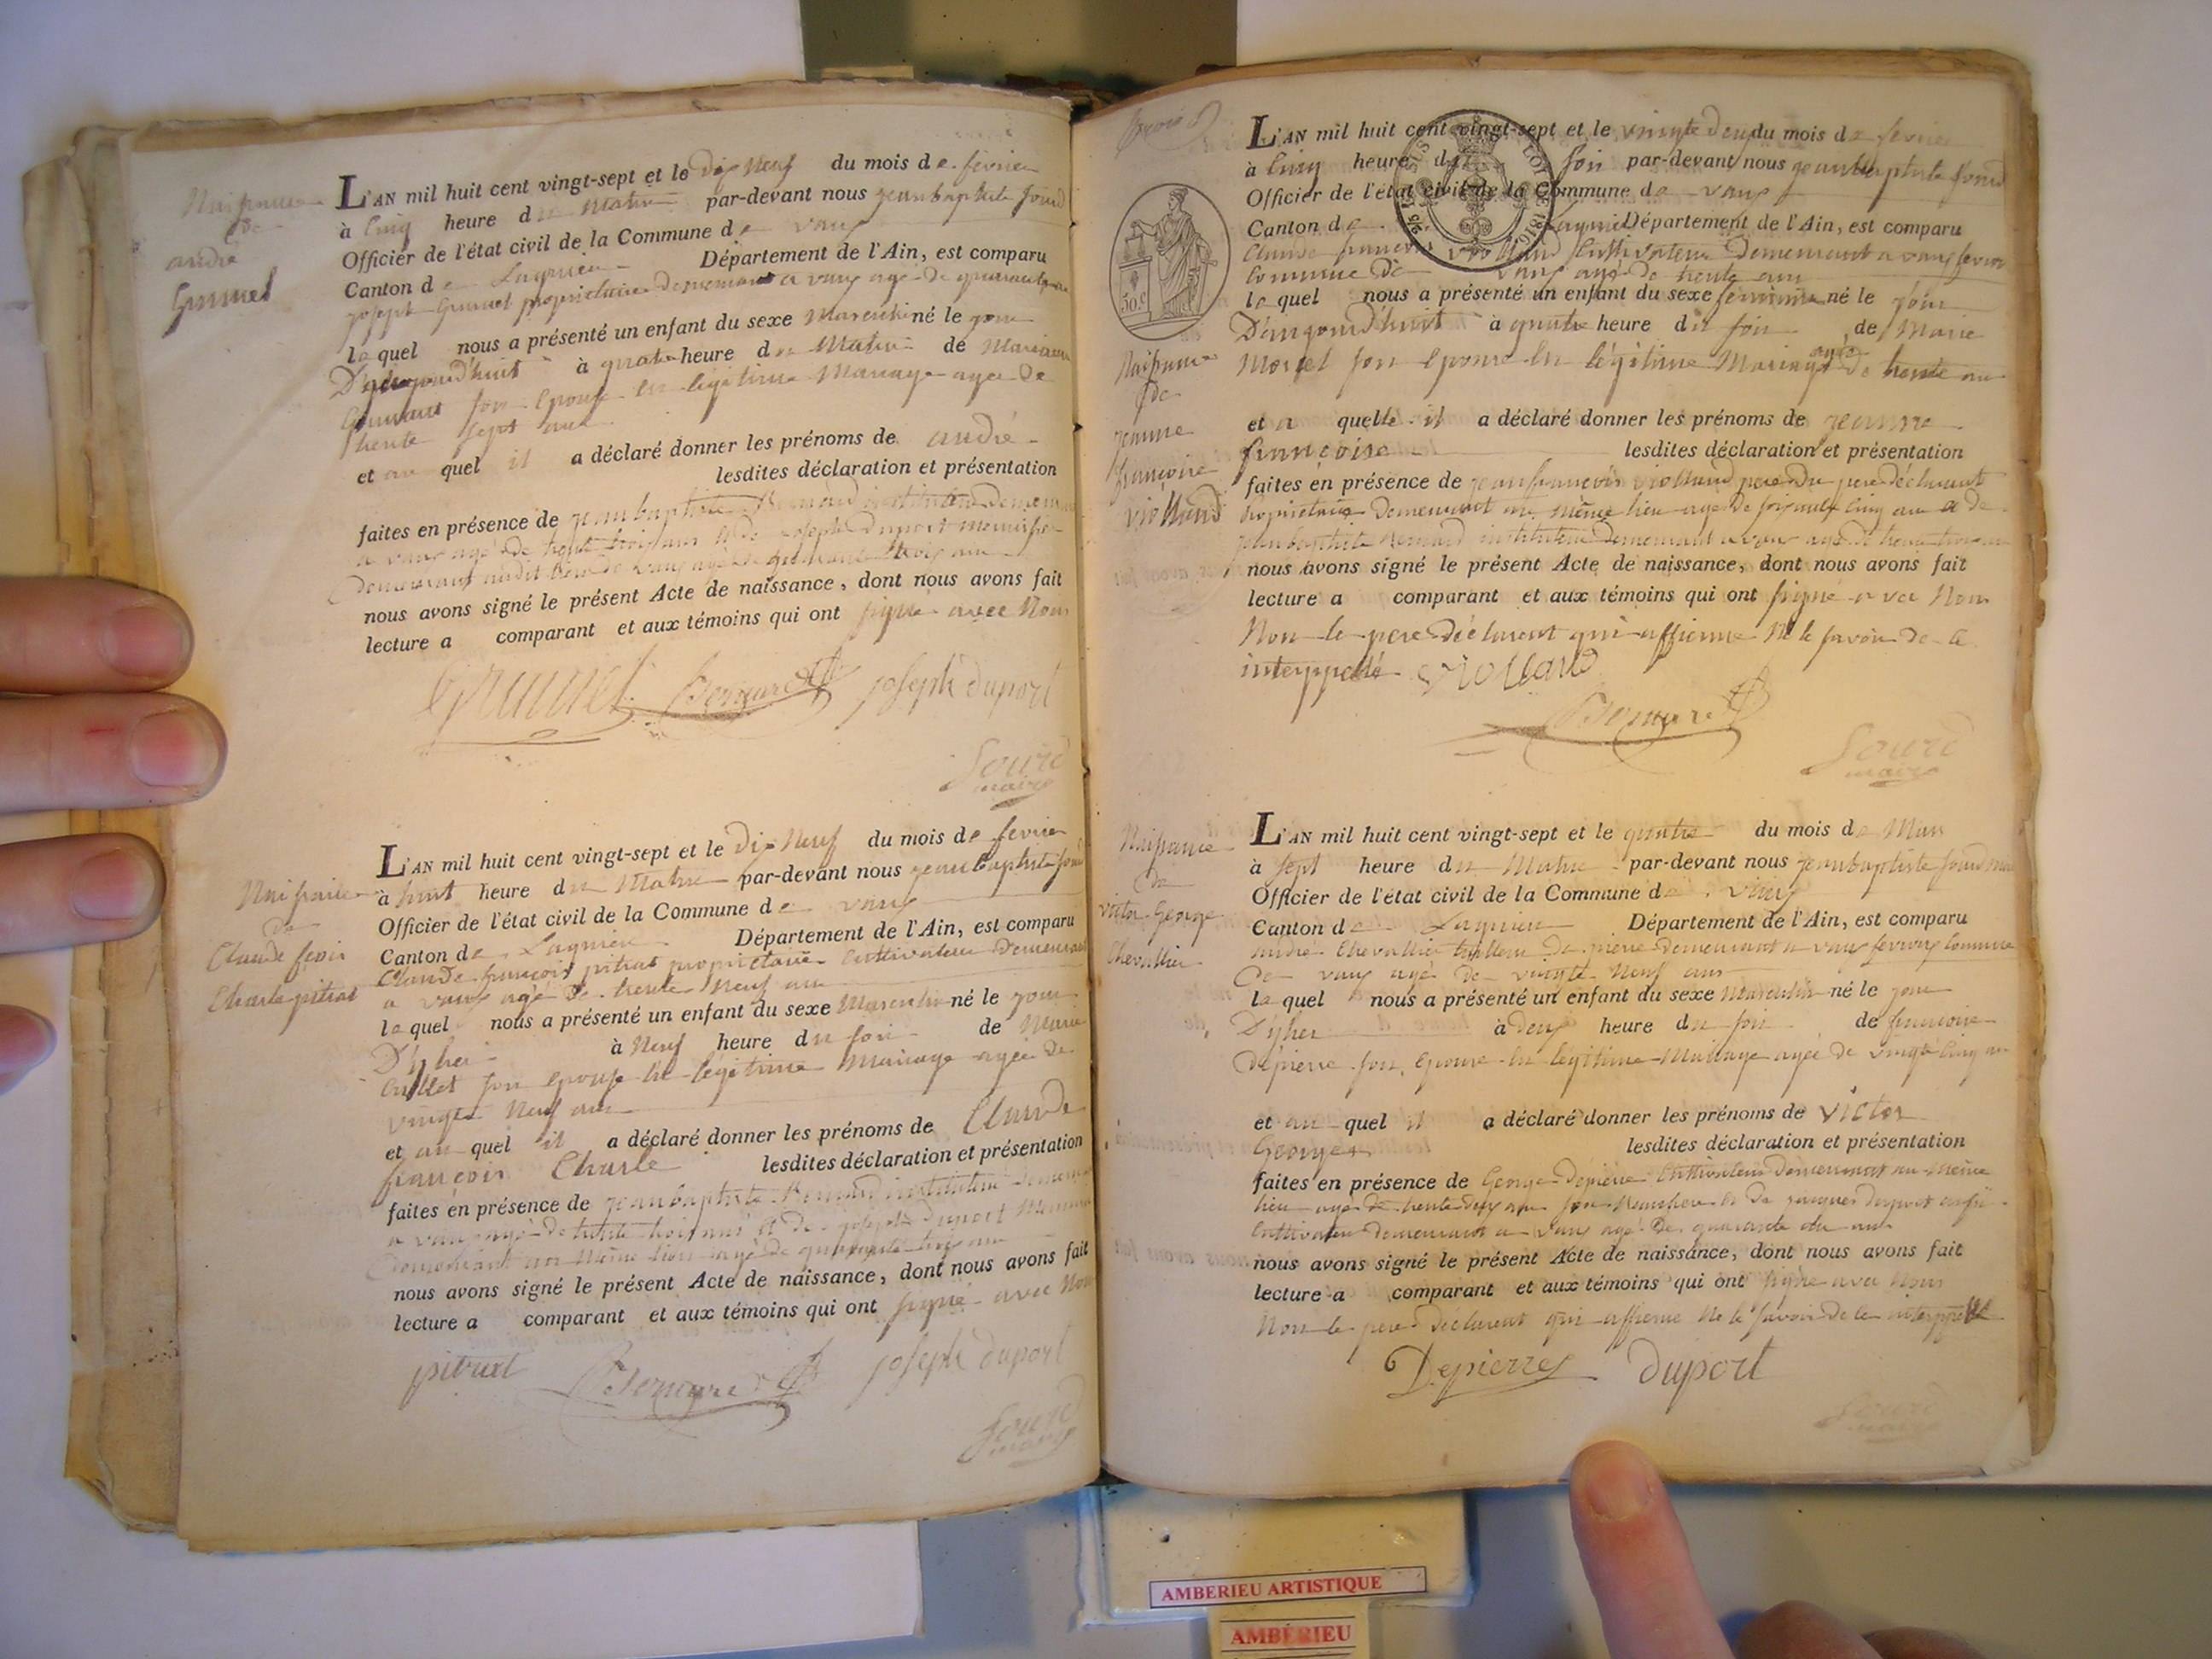 Naissance
de
andré
Grumel
L'AN mil huit cent vingt-sept et le Dix Neuf du mois de fevrier
à Cinq heure du Matin par-devant nous jeanbaptiste fourd
Officier de l'état civil de la Commune de vaux
Canton de Lagnieu Département de l'Ain, est comparu
joseph Grumel proprietaire Demeurant a vaux agé de quarante
le quel nous a présenté un enfant du sexe Masculin né le jour
D'aujourd'huit à quatre heure du Matin de
son Epouse en légitime Mariage agée de
trente sept ans
et au quel il a déclaré donner les prénoms de andré
lesdites déclaration et présentation
faites en présence de jeanbaptiste Bernard instituteur
a vaux agé de trente trois ans et de joseph Duport
Demeurant audit lieu de vaux agé de quarante trois ans
nous avons signé le présent Acte de naissance, dont nous avons fait
lecture a comparant et aux témoins qui ont signé avec Nous
Grumel Bernard joseph duport
Sourd
maire
Naissance
de
Claude
Charle pitrat
L'AN mil huit cent vingt-sept et le Dix Neuf du mois de fevrier
à huit heure du Matin par-devant nous jeanbaptiste
Officier de l'état civil de la Commune de vaux
Canton de Lagnieu Département de l'Ain, est comparu
Claude françois pitrat proprietaire Cultivateur Demeurant
a vaux agé de trente Neuf ans
le quel nous a présenté un enfant du sexe Masculin né le jour
D'yher à Neuf heure du soir de Marie
son Epouse en légitime Mariage agée de
vingt Neuf ans
et au quel il a déclaré donner les prénoms de Claude
françois Charle lesdites déclaration et présentation
faites en présence de jeanbaptiste Bernard instituteur
a vaux agé de trente trois ans et de joseph Duport
Demeurant au Même lieu agé de quarante trois ans
nous avons signé le présent Acte de naissance, dont nous avons fait
lecture a comparant et aux témoins qui ont signé avec Nous
pitrat Bernard joseph duport
Sourd
maire
L'AN mil huit cent vingt-sept et le vingte deux du mois de fevrier
à Cinq heure du soir par-devant nous jeanbaptiste
Officier de l'état civil de la Commune de vaux
Canton de Lagnieu Département de l'Ain, est comparu
Claude françois violland Cultivateur Demeurant a vaux fevroux
Commune De vaux agé de trente ans
le quel nous a présenté un enfant du sexe feminin né le jour
D'aujourd'huit à quatre heure du soir de Marie
Morel son Epouse en légitime Mariage agée de trente ans
50 c
Naissance
de
jeanne
françoise
violland
et a quelle il a déclaré donner les prénoms de jeanne
françoise lesdites déclaration et présentation
faites en présence de jeanfrançois violland pere du pere déclarant
proprietaire Demeurant au même lieu agé de soixante cinq ans et de
jeanbaptiste Bernard instituteur Demeurant a vaux agé de trente trois ans
nous avons signé le présent Acte de naissance, dont nous avons fait
lecture a comparant et aux témoins qui ont signé avec Nous
Non le pere déclarant qui affirme Ne le savoir de ce
interppellé violland
Bernard
Sourd
maire
Naissance
de
victor George
Chevallier
L'AN mil huit cent vingt-sept et le quatre du mois de Mars
à sept heure du Matin par-devant nous jeanbaptiste
Officier de l'état civil de la Commune de vaux
Canton de Lagnieu Département de l'Ain, est comparu
andré Chevallier tailleur De pierre demeurant a vaux fevroux Commune
De vaux agé de vingte Neuf ans
le quel nous a présenté un enfant du sexe Masculin né le jour
D'yher à deux heure du soir de françoise
Depierre son Epouse en légitime Mariage agée de vingte Cinq ans
et au quel il a déclaré donner les prénoms de victor
George lesdites déclaration et présentation
faites en présence de George Depierre Cultivateur Demeurant au Même
lieu agé de trente deux ans son et de jacques Duport
Cultivateur demeurant a vaux agé De quarante ans
nous avons signé le présent Acte de naissance, dont nous avons fait
lecture a comparant et aux témoins qui ont signé avec Nous
Non le pere déclarant qui affirme Ne le savoir de ce interppellé
Depierre duport
Sourd
maire
AMBERIEU ARTISTIQUE
AMBÉRIEU